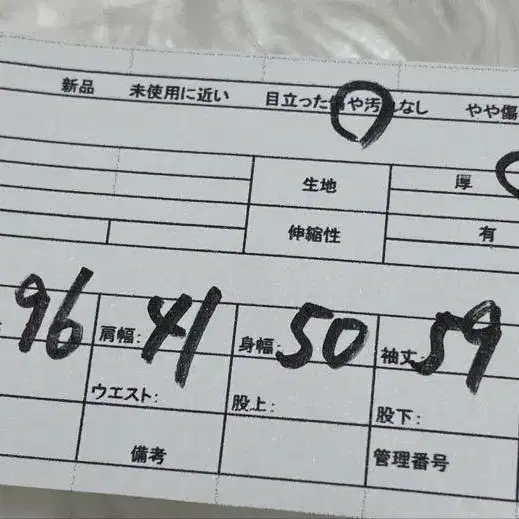 新品 未使用に近い 目立った傷や汚れなし やや傷
生地 厚
伸縮性 有
96 肩幅: 41 身幅: 50 袖丈: 59
ウエスト: 股上: 股下:
備考 管理番号